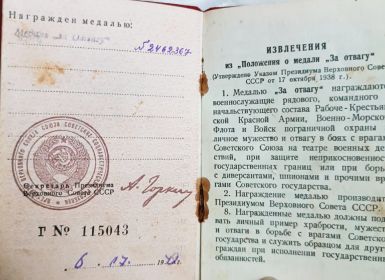 Награжден медалью:
Медаль „За отвагу"
№2462367
Секретарь Президиума
Верховного Совета СССР
А. Горкин
Г № 115043
6. 07 19
ИЗВЛЕЧЕНИЯ
из „Положения о медали „За отвагу"
(Утверждено Указом Президиума Верховного Сове
СССР от 17 октября 1938 г.)
1. Медалью „За отвагу" награждаютс
военнослужащие рядового, командного
начальствующего состава Рабоче-Крестья
ской Красной Армии, Военно-Морског
Флота и Войск пограничной охраны
личное мужество и отвагу в боях с врагам
Советского Союза на театре военных дей
ствий, при защите неприкосновенност
государственных границ или при борьб
с диверсантами, шпионами и прочими вра
гами Советского государства.
2. Награждение медалью производитс
Президиумом Верховного Совета СССР.
8. Награжденные медалью должны под
вать личный пример храбрости, мужеств
и отваги в борьбе с врагами Советског
государства и служить образцом для друг
граждан при исполнении государственн
обязанностей.